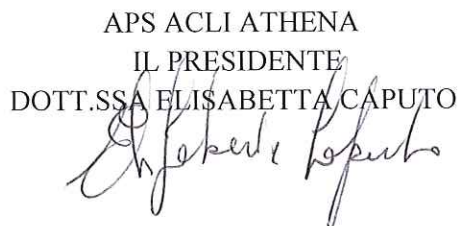 APS ACLI ATHENA
IL PRESIDENTE
DOTT.SSA ELISABETTA CAPUTO
Elisabetta Caputo